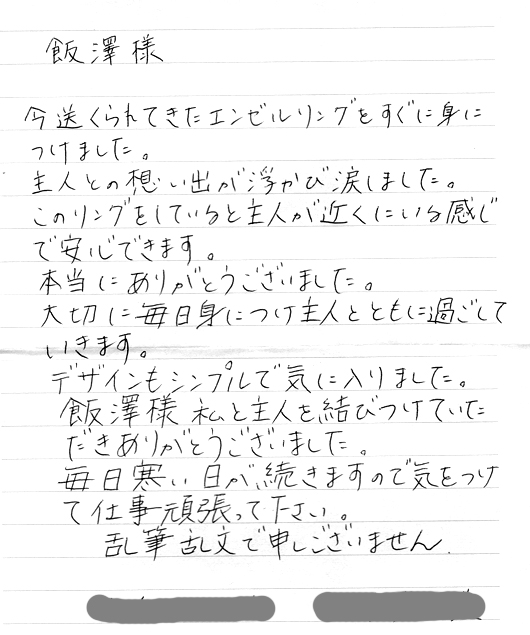 飯澤様
今送くられてきたエンゼルリングをすぐに身に
つけました。
主人との想い出が浮かび涙しました。
このリングをしていると主人が近くにいる感じ
で安心できます。
本当にありがとうございました。
大切に毎日身につけ主人とともに過ごして
いきます。
デザインもシンプルで気に入りました。
飯澤様 私と主人を結びつけていた
だきありがとうございました。
毎日寒い日が続きますので気をつけ
て仕事頑張って下さい。
乱筆乱文で申しございません